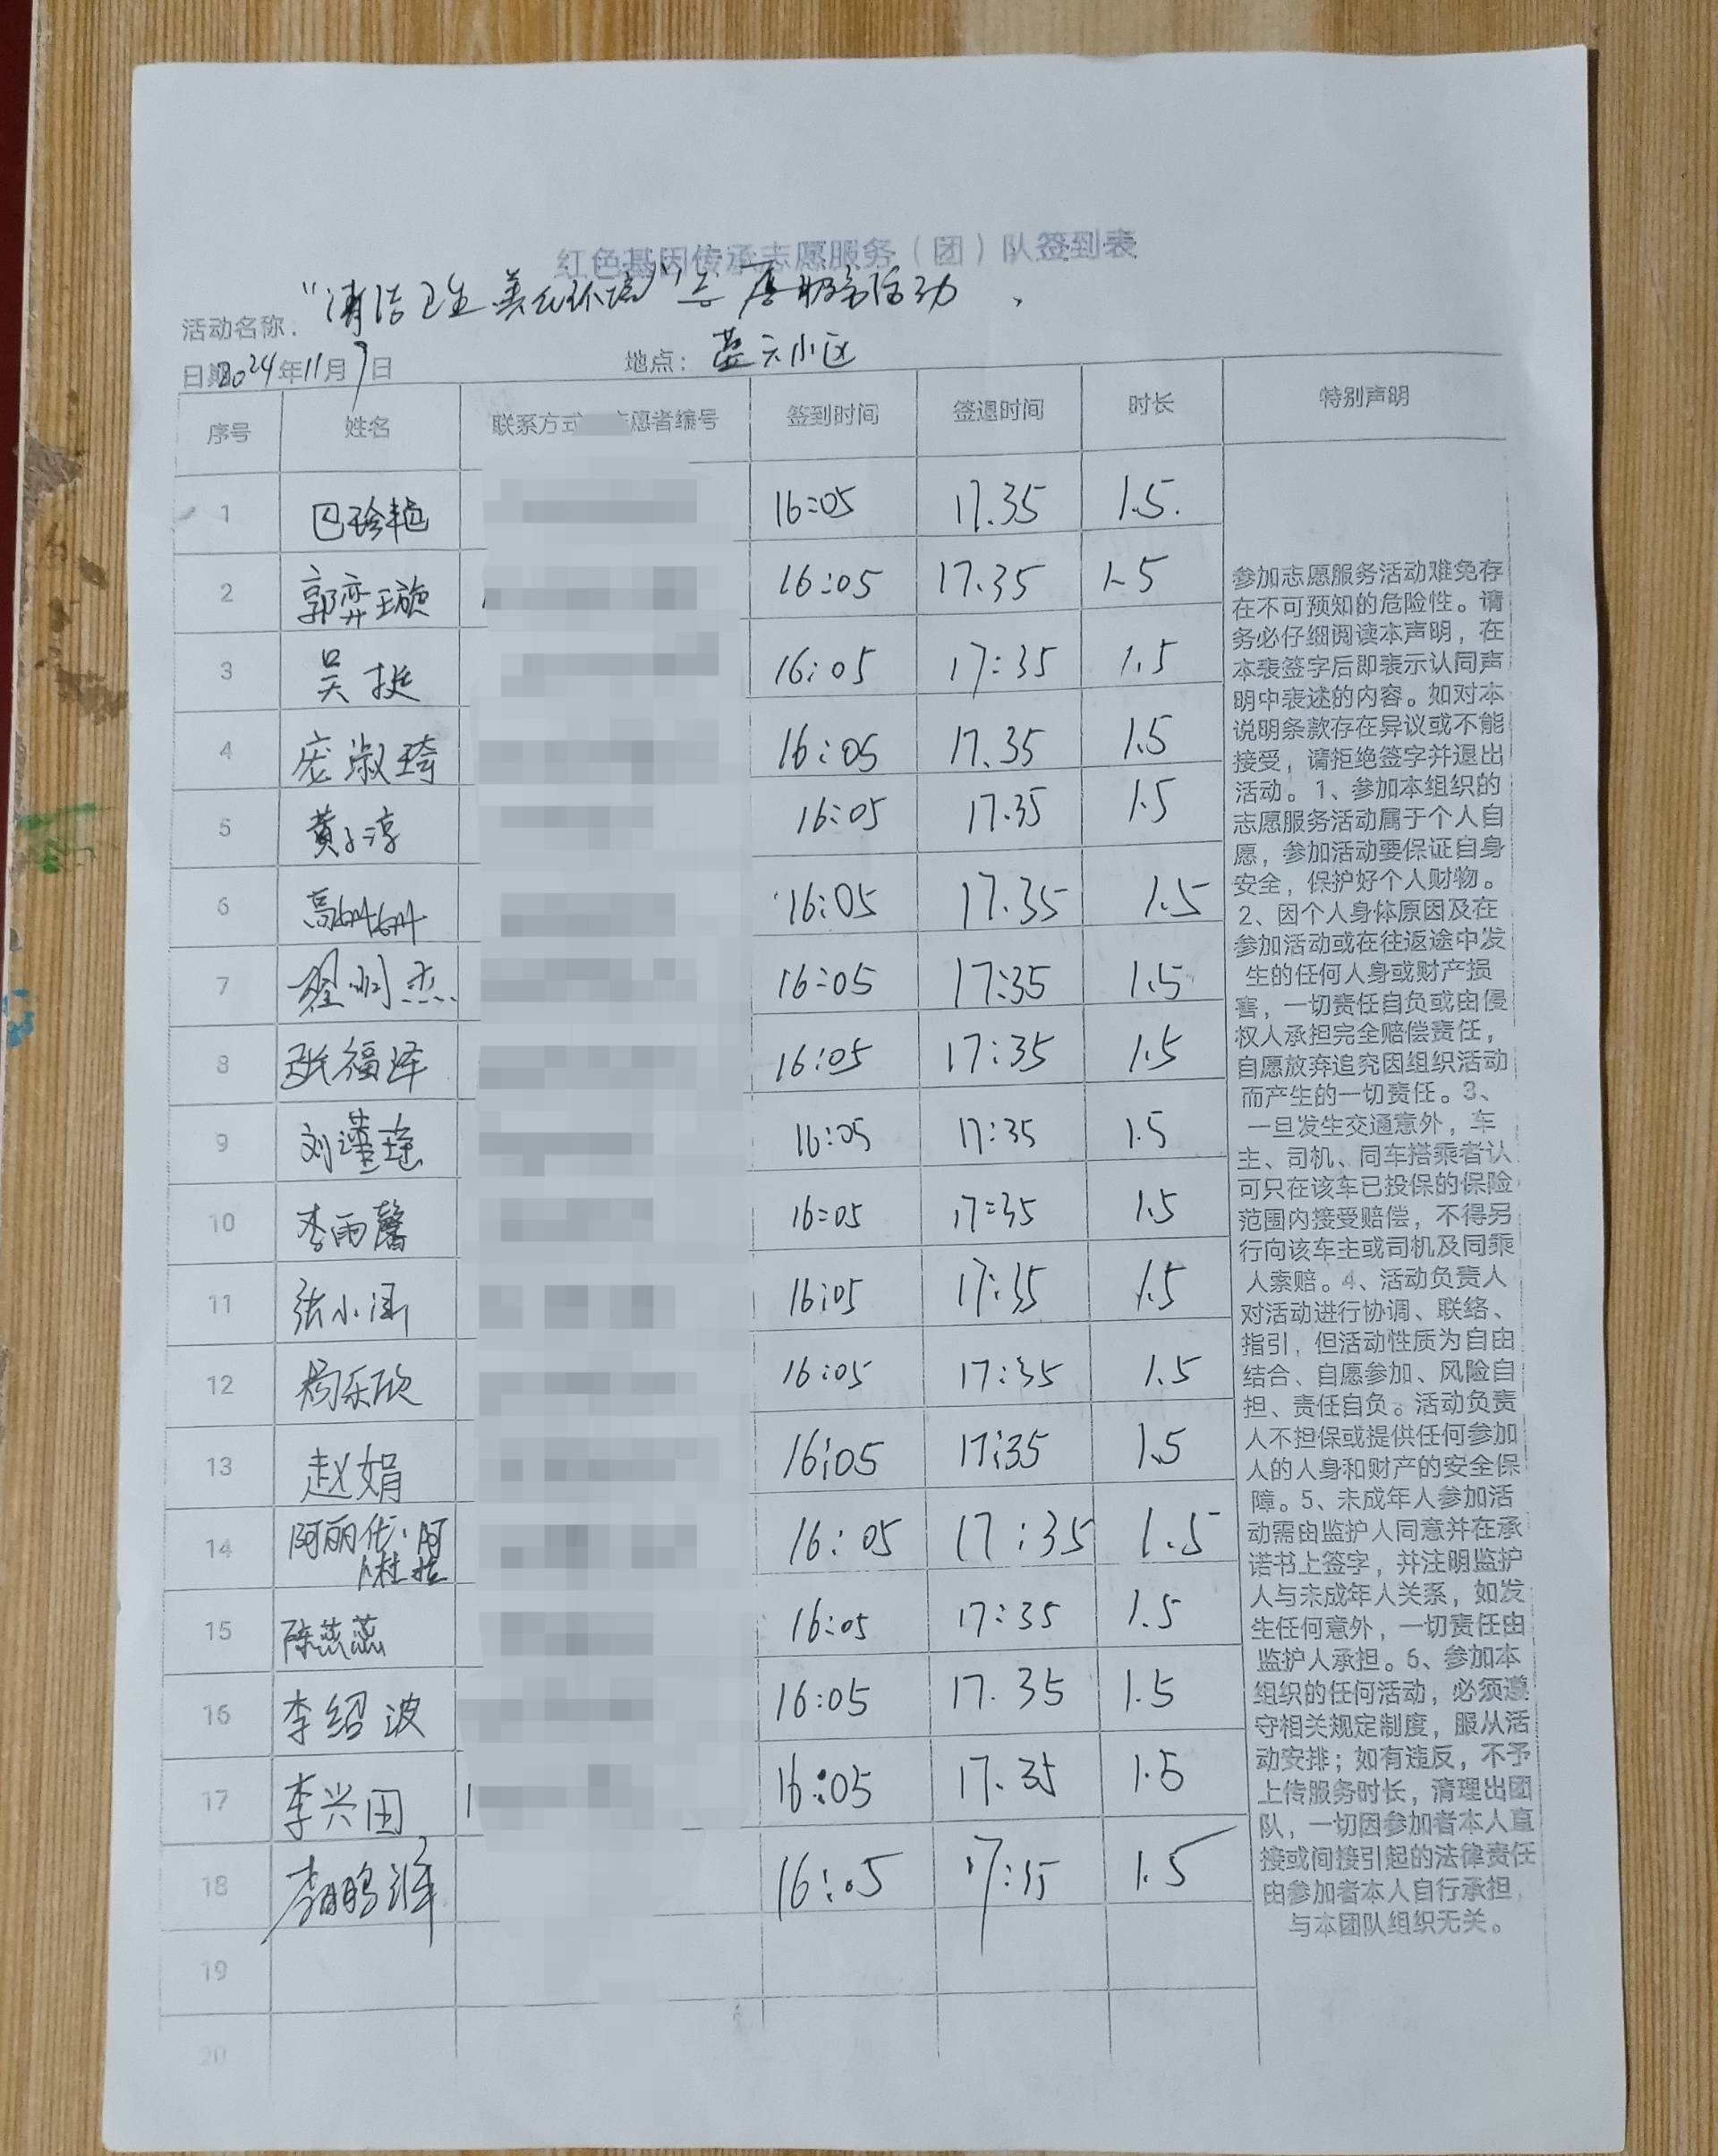 红色基因传承志愿服务（团）队签到表
活动名称： "清洁卫生 美化环境" 志愿服务活动
日期2024年11月7日 地点： 蓝天小区
序号 姓名 联系方式 愿者编号 签到时间 签退时间 时长 特别声明
1 16:05 17.35 1.5.
2 郭弈璇 16:05 17.35 1.5
3 吴挺 16:05 17:35 1.5
4 庞淑琦 16:05 17.35 1.5
5 黄子淳 16:05 17.35 1.5
6 高姗姗 16:05 17.35 1.5
7 16:05 17:35 1.5
8 张福泽 16:05 17:35 1.5
9 刘 16:05 17:35 1.5
10 李雨馨 16:05 17:35 1.5
11 张小涵 16:05 17:35 1.5
12 杨乐欣 16:05 17:35 1.5
13 赵娟 16:05 17:35 1.5
14 阿丽 16:05 17:35 1.5
15 陈燕燕 16:05 17:35 1.5
16 李绍波 16:05 17.35 1.5
17 李兴田 16:05 17.35 1.5
18 李鹏 16:05 17:35 1.5
19
20
参加志愿服务活动难免存
在不可预知的危险性。请
务必仔细阅读本声明，在
本表签字后即表示认同声
明中表述的内容。如对本
说明条款存在异议或不能
接受，请拒绝签字并退出
活动。1、参加本组织的
志愿服务活动属于个人自
愿，参加活动要保证自身
安全，保护好个人财物。
2、因个人身体原因及在
参加活动或在往返途中发
生的任何人身或财产损
害，一切责任自负或由侵
权人承担完全赔偿责任，
自愿放弃追究因组织活动
而产生的一切责任。3、
一旦发生交通意外，车
主、司机、同车搭乘者认
可只在该车已投保的保险
范围内接受赔偿，不得另
行向该车主或司机及同乘
人索赔。4、活动负责人
对活动进行协调、联络、
指引，但活动性质为自由
结合、自愿参加、风险自
担、责任自负。活动负责
人不担保或提供任何参加
人的人身和财产的安全保
障。5、未成年人参加活
动需由监护人同意并在承
诺书上签字，并注明监护
人与未成年人关系，如发
生任何意外，一切责任由
监护人承担。6、参加本
组织的任何活动，必须遵
守相关规定制度，服从活
动安排；如有违反，不予
上传服务时长，清理出团
队，一切因参加者本人直
接或间接引起的法律责任
由参加者本人自行承担，
与本团队组织无关。